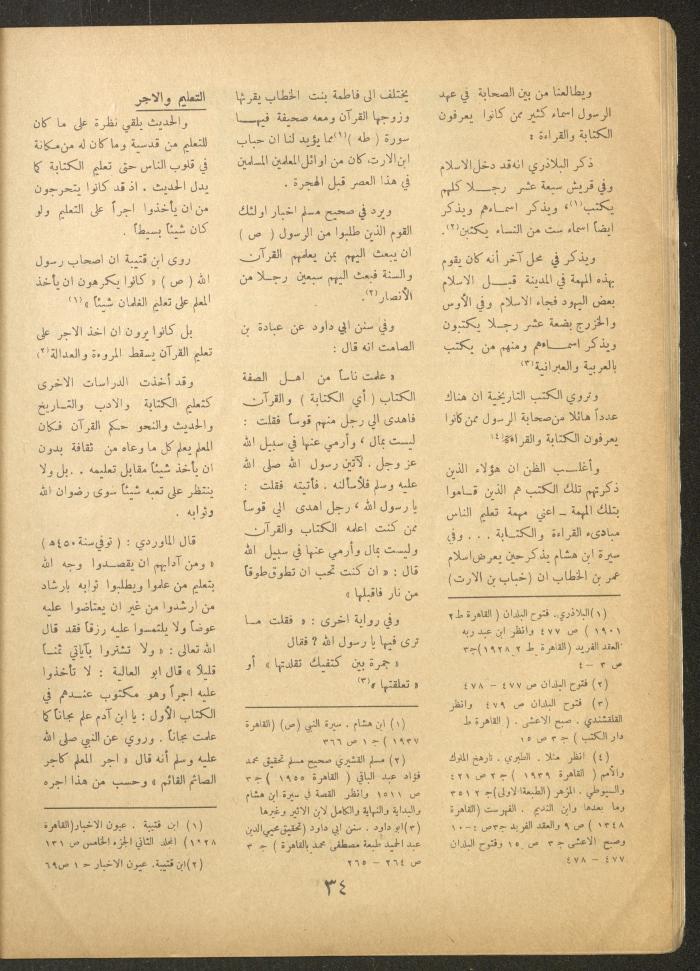 ويطالعنا من بين الصحابة في عهد
الرسول اسماء كثير ممن كانوا يعرفون
الكتابة والقراءة :
ذكر البلاذري انه قد دخل الاسلام
وفي قريش سبعة عشر رجلا كلهم
يكتب(١)، ويذكر اسماءهم ويذكر
ايضاً اسماء ست من النساء يكتبن(٢).
ويذكر في محل آخر أنه كان يقوم
بهذه المهمة في المدينة قبل الاسلام
بعض اليهود فجاء الاسلام وفي الأوس
والخزرج بضعة عشر رجلا يكتبون
ويذكر اسماءهم ومنهم من يكتب
بالعربية والعبرانية(٣)
وتروي الكتب التاريخية ان هناك
عدداً هائلا من صحابة الرسول ممن كانوا
يعرفون الكتابة والقراءة(٤)
وأغلب الظن ان هؤلاء الذين
ذكرتهم تلك الكتب هم الذين قاموا
بتلك المهمة ــ اعني مهمة تعليم الناس
مبادىء القراءة والكتابة ... وفي
سيرة ابن هشام يذكر حين يعرض اسلام
عمر بن الخطاب ان (خباب بن الارت)
(١) البلاذري. فتوح البلدان ( القاهرة ط ٢
١٩٠١ ) ص ٤٧٧ وانظر ابن عبد ربه
العقد الفريد (القاهرة ط ٢ ١٩٢٨) ج ٣
ص ٣ – ٤
(٢) فتوح البلدان ص ٤٧٧ – ٤٧٨
(٣) فتوح البلدان ص ٤٧٩ وانظر
القلقشندي . صبح الاعشى . ( القاهرة ط
دار الكتب ) ج ٣ ص ١٥
(٤) انظر مثلا . الطبري . تاريخ الملوك
والأمم ( القاهرة ١٩٣٩ ) ج ٢ ص ٤٢١
والسيوطي . المزهر (الطبعة الاولى) ج ٢ ٣٥١
وما بعدها وابن النديم . الفهرست (القاهرة
١٣٤٨ ) ص ٩ والعقد الفريد ج ٣ ص ٤–١٠
وصبح الاعشى ج ٣ ص ١٥ وفتوح البلدان
٤٧٧ – ٤٧٨
يختلف الى فاطمة بنت الخطاب يقرئها
وزوجها القرآن ومعه صحيفة فيها
سورة ( طه )(١) مما يؤيد لنا ان حباب
ابن الارت، كان من اوائل المعلمين المسلمين
في هذا العصر قبل الهجرة .
ويرد في صحيح مسلم اخبار اولئك
القوم الذين طلبوا من الرسول ( ص )
ان يبعث اليهم بمن يعلمهم القرآن
والسنة فبعث اليهم سبعين رجلا من
الأنصار(٢).
وفي سنن ابي داود عن عبادة بن
الصامت انه قال :
« علمت ناساً من اهل الصفة
الكتاب ( أي الكتابة ) والقرآن
فاهدى الي رجل منهم قوساً فقلت :
ليست بمال ، وأرمي عنها في سبيل الله
عز وجل . لآتين رسول الله صلى الله
عليه وسلم فلأسألنه . فأتيته فقلت :
يا رسول الله ، رجل اهدى الي قوساً
ممن كنت اعلمه الكتاب والقرآن
وليست بمال وأرمي عنها في سبيل الله
قال : « ان كنت تحب ان تطوق طوقاً
من نار فاقبلها »
وفي رواية اخرى : « فقلت ما
ترى فيها يا رسول الله ؟ فقال
« جمرة بين كتفيك تقلدتها » أو
« تعلقتها »(٣)
(١) ابن هشام . سيرة النبي (ص) (القاهرة
١٩٣٧ ) ج ١ ص ٣٦٦
(٢) مسلم القشيري صحيح مسلم تحقيق محمد
فؤاد عبد الباقي ( القاهرة ١٩٥٥ ) ج ٣
ص ١٥١١ وانظر القصة في سيرة ابن هشام
والبداية والنهاية والكامل لابن الاثير وغيرها
(٣) ابو داود . سنن ابي داود (تحقيق محيي الدين
عبد الحميد طبعة مصطفى محمد بالقاهرة ) ج ٣
ص ٢٦٤ – ٢٦٥
التعليم والاجر
والحديث يلقي نظرة على ما كان
للتعليم من قدسية وما كان له من مكانة
في قلوب الناس حتى تعليم الكتابة كما
يدل الحديث . اذ قد كانوا يتحرجون
من ان يأخذوا اجراً على التعليم ولو
كان شيئاً بسيطاً .
روى ابن قتيبة ان اصحاب رسول
الله ( ص ) « كانوا يكرهون ان يأخذ
المعلم على تعليم الغلمان شيئاً »(١)
بل كانوا يرون ان اخذ الاجر على
تعليم القرآن يسقط المروءة والعدالة(٢)
وقد أخذت الدراسات الاخرى
كتعليم الكتابة والادب والتاريخ
والحديث والنحو حكم القرآن فكان
المعلم يعلم كل ما وعاه من ثقافة بدون
ان يأخذ شيئاً مقابل تعليمه .. بل ولا
ينتظر على تعبه شيئاً سوى رضوان الله
وثوابه .
قال الماوردي : ( توفي سنة ٤٥٠ هـ )
« ومن آدابهم ان يقصدوا وجه الله
بتعليم من علموا ويطلبوا ثوابه بارشاد
من ارشدوا من غير ان يعتاضوا عليه
عوضاً ولا يلتمسوا عليه رزقاً فقد قال
الله تعالى : « ولا تشتروا بآياتي ثمناً
قليلاً » قال ابو العالية : لا تأخذوا
عليه اجراً وهو مكتوب عندهم في
الكتاب الأول : يا ابن آدم علم مجاناً كما
علمت مجاناً . وروي عن النبي صلى الله
عليه وسلم أنه قال « اجر المعلم كاجر
الصائم القائم » وحسب من هذا اجره
(١) ابن قتيبة . عيون الاخبار (القاهرة
١٩٢٨ ) المجلد الثاني الجزء الخامس ص ١٣١
(٢) ابن قتيبة. عيون الاخبار ح ١ ص ٦٩
٣٤